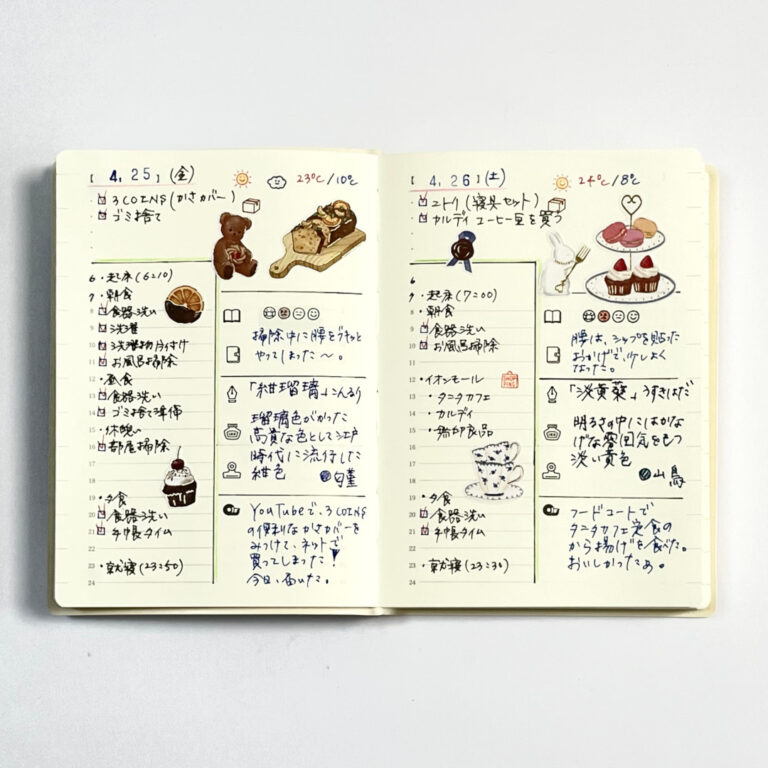 【 4, 25 】 (金)
23℃/10℃
3COINS (かさカバー)
ゴミ捨て
6 ・起床(6:10)
7 ・朝食
8 食器洗い
9 洗濯
10 洗濯物片付け
11 お風呂掃除
12 ・昼食
13 食器洗い
14 ゴミ捨て準備
15 ・休憩い
16 部屋掃除
17
18
19 ・夕食
20 食器洗い
21 手帳タイム
22
23 ・就寝(23:50)
24
掃除中に腰をギクッと
やってしまった〜。
「紺瑠璃」こんるり
瑠璃色がかった
高貴な色として江戸
時代に流行した
紺色
匂菫
YouTubeで、3COINS
の便利なかさカバーを
みつけて、ネットで
買ってしまった!
今日、届いた。
【 4, 26 】 (土)
24℃/8℃
ニトリ (寝具セット)
カルディ コーヒー豆を買う
6
7 ・起床(7:00)
8 ・朝食
9 食器洗い
10 お風呂掃除
11
12 ・イオンモール
SHOPPING
13 ・タニタカフェ
14 ・カルディ
15 ・無印良品
16
17
18
19 ・夕食
20 食器洗い
21 手帳タイム
22
23 ・就寝(23:30)
24
腰は、シップを貼った
おかげで、少しよく
なった。
「淡黄蘗」うすきはだ
明るさの中にはかな
げな雰囲気をもつ
淡い黄色
山鳥
フードコートで
タニタカフェ定食の
から揚げを食べた。
おいしかったぁ。